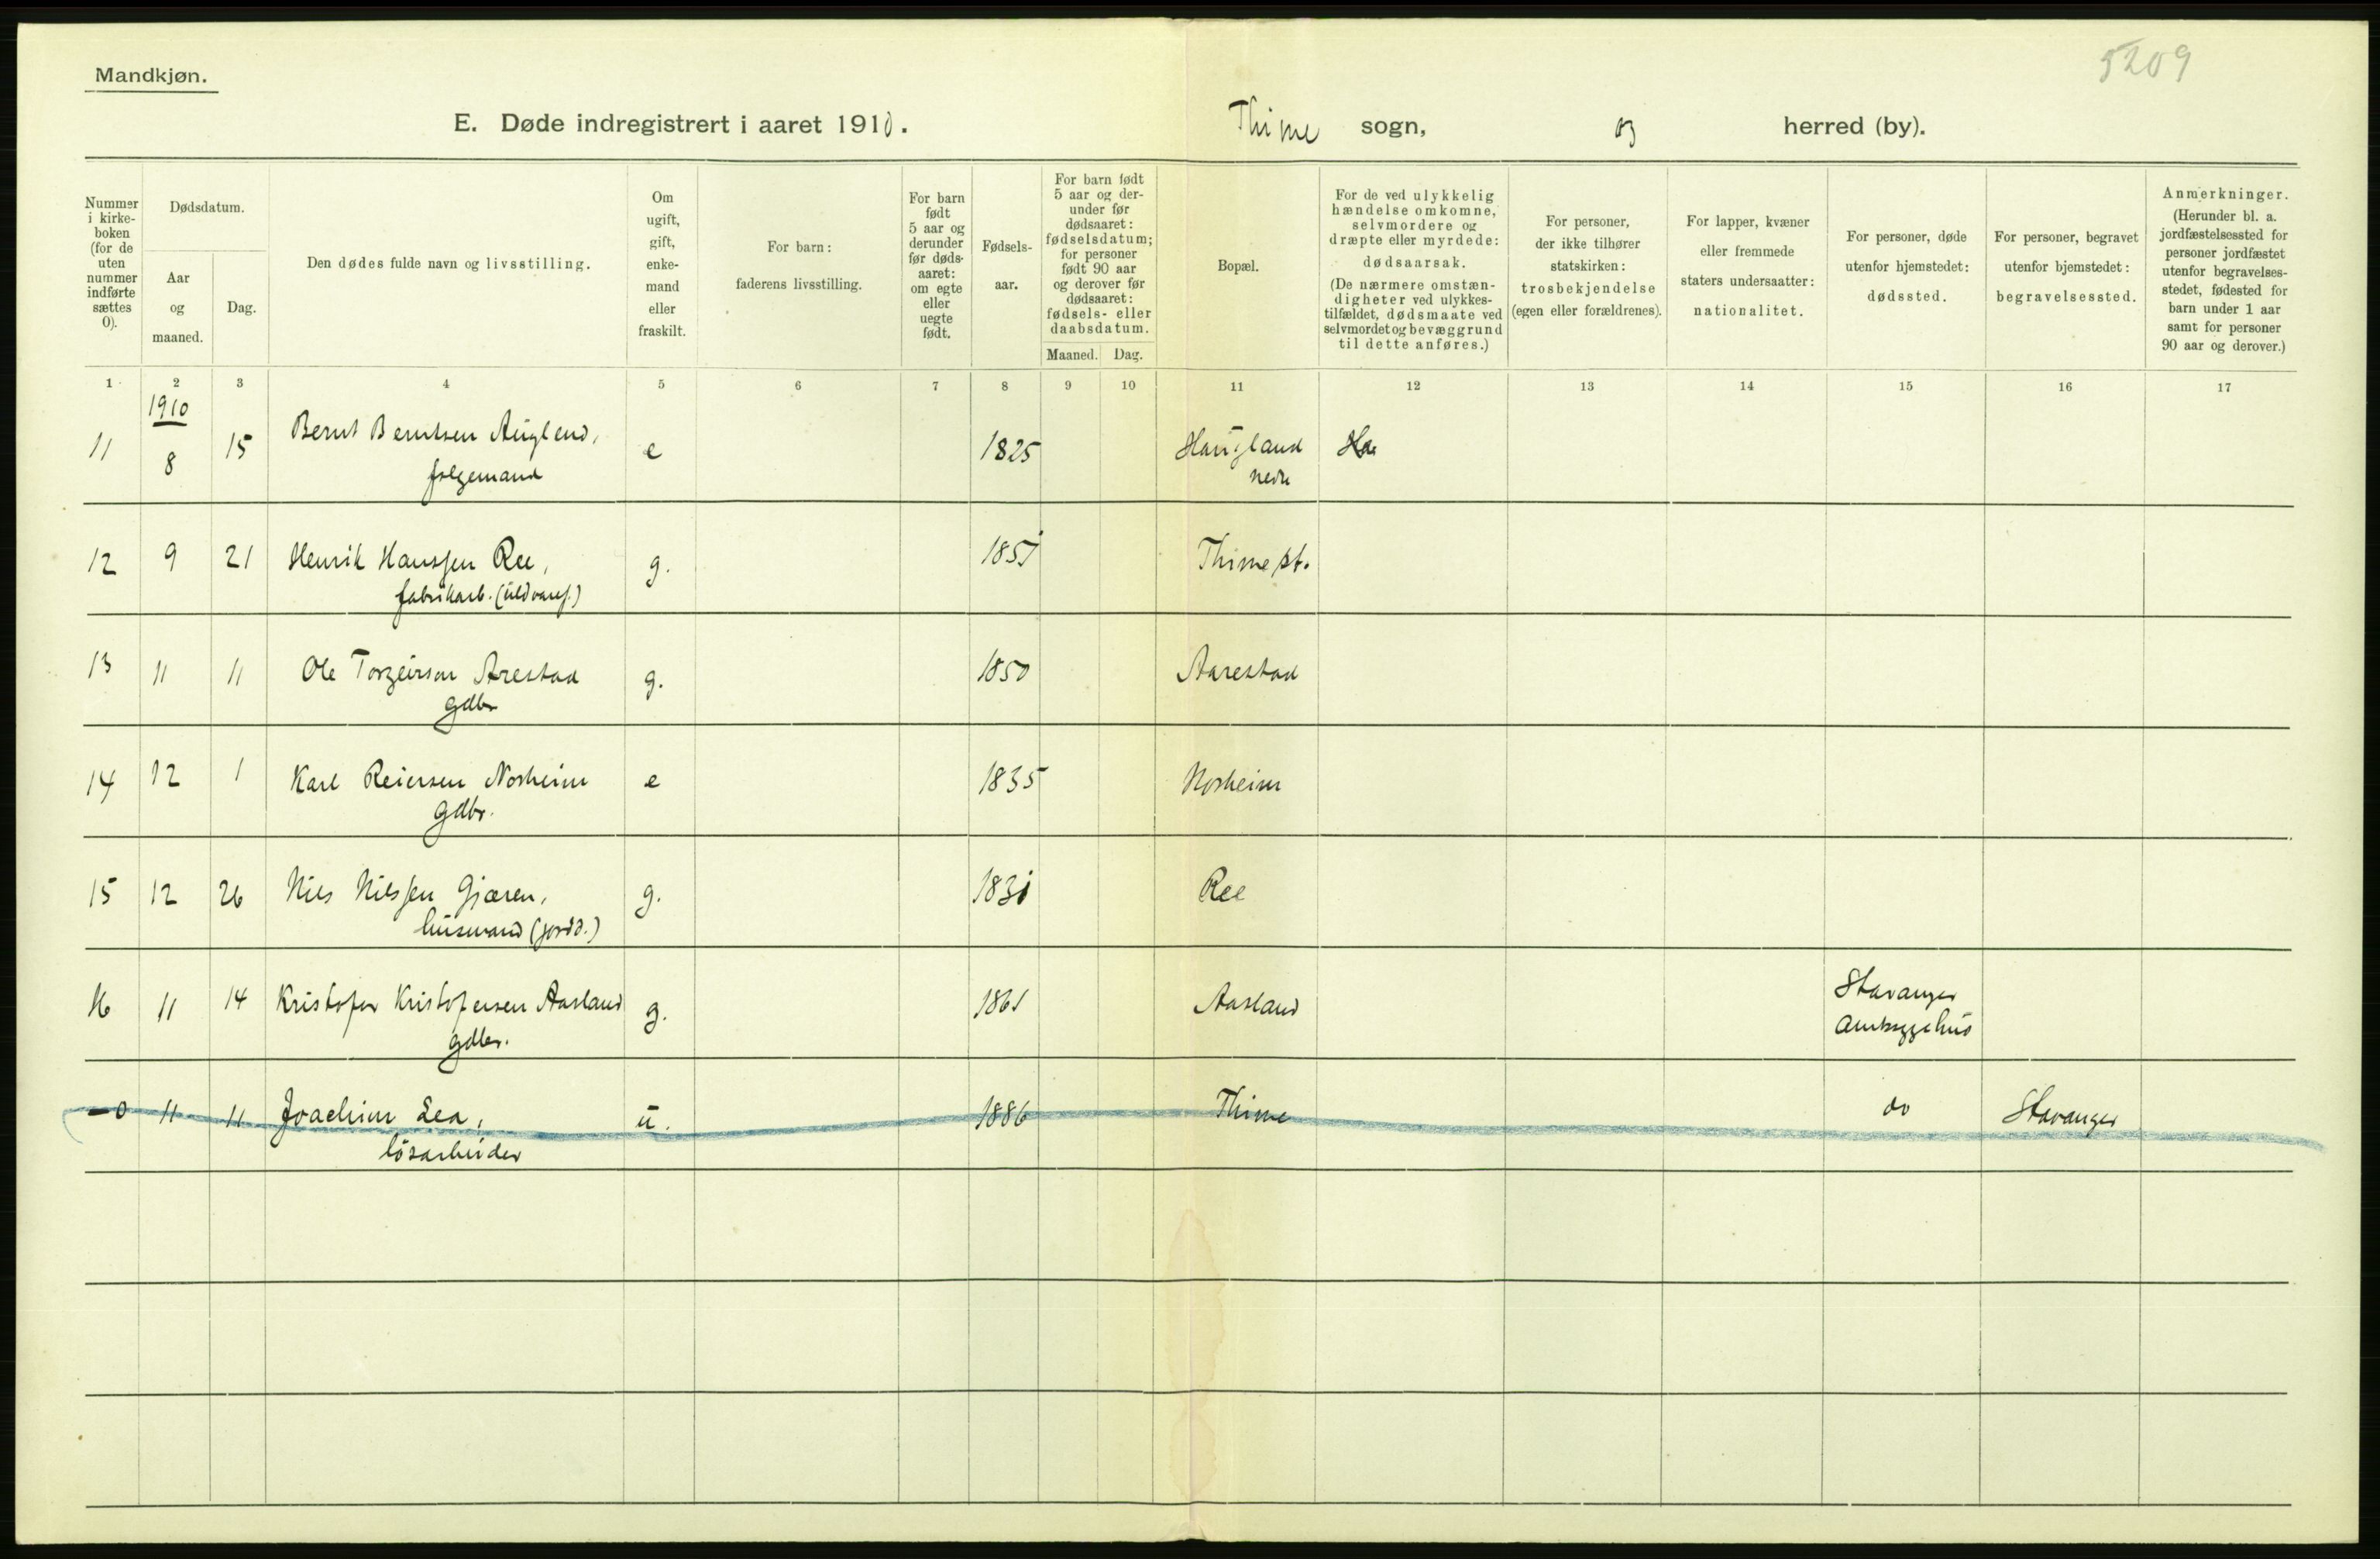 5209
Mandkjøn.
E. Døde indregistrert i aaret 1910. Thime sogn, og herred (by).
Nummer i kirke-boken (for de uten nummer indførte sættes 0).
Dødsdatum.
Aar og maaned.
Dag.
Den dødes fulde navn og livsstilling.
Om ugift, gift, enke-mand eller fraskilt.
For barn: faderens livsstilling.
For barn født 5 aar og derunder før døds-aaret: om egte eller uegte født.
Fødsels-aar.
For barn født 5 aar og der-under før dødsaaret: fødselsdatum; for personer født 90 aar og derover før dødsaaret: fødsels- eller daabsdatum.
Maaned. Dag.
Bopæl.
For de ved ulykkelig hændelse omkomne, selvmordere og dræpte eller myrdede: dødsaarsak. (De nærmere omstæn-digheter ved ulykkes-tilfældet, dødsmaate ved selvmordet og bevæggrund til dette anføres.)
For personer, der ikke tilhører statskirken: trosbekjendelse (egen eller forældrenes).
For lapper, kvæner eller fremmede staters undersaatter: nationalitet.
For personer, døde utenfor hjemstedet: dødssted.
For personer, begravet utenfor hjemstedet: begravelsessted.
Anmerkninger. (Herunder bl. a. jordfæstelsessted for personer jordfæstet utenfor begravelses-stedet, fødested for barn under 1 aar samt for personer 90 aar og derover.)
1 2 3 4 5 6 7 8 9 10 11 12 13 14 15 16 17
1910
11 8 15 Bernt Berntsen Auglend, e 1825 Haugland Ha
folgemand nedre
12 9 21 Henrik Hanssen Ree, g. 1851 Thime st.
fabrikarb. (uldvaref.)
13 11 11 Ole Torgeirson Arestad g. 1850 Aarestad
gdbr
14 12 1 Karl Reiersen Norheim e 1835 Norheim
gdbr.
15 12 26 Nils Nilssen Gjæren, g. Ree
husmand (jordd.)
16 11 14 Kristofer Kristofersen Aasland g. 1861 Aasland Stavanger
gdbr. Amtssygehus
0 11 11 Joachim Lea, u. 1886 Thime do Stavanger
løsarbeider